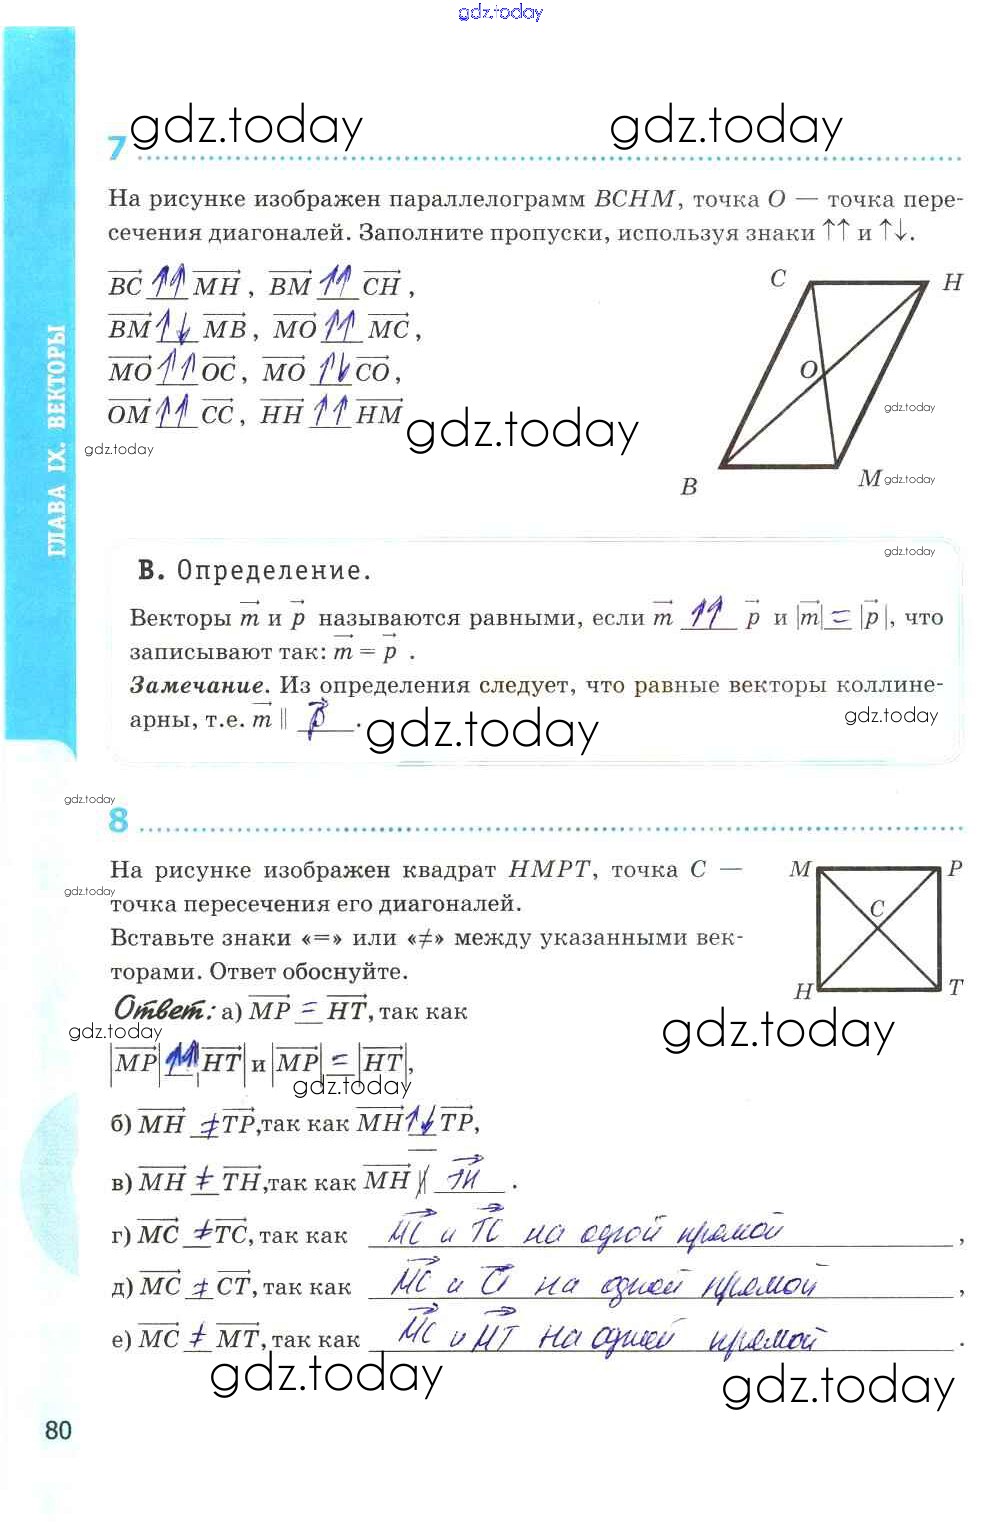 gdz.today
gdz.today gdz.today
7
На рисунке изображен параллелограмм BCHM, точка O — точка пере-
сечения диагоналей. Заполните пропуски, используя знаки ↑↑ и ↑↓.
BC ↑↑ MH, BM ↑↑ CH,
BM ↑↓ MB, MO ↑↑ MC,
MO ↑↑ OC, MO ↑↓ CO,
OM ↑↑ CC, HH ↑↑ HM
C H
O
B M
gdz.today
gdz.today
gdz.today
gdz.today
ГЛАВА IX. ВЕКТОРЫ
gdz.today
В. Определение.
Векторы m и p называются равными, если m ↑↑ p и |m| = |p|, что
записывают так: m = p .
Замечание. Из определения следует, что равные векторы коллине-
арны, т.е. m || p .
gdz.today gdz.today
gdz.today
8
На рисунке изображен квадрат HMPT, точка C —
gdz.today
точка пересечения его диагоналей.
Вставьте знаки «=» или «≠» между указанными век-
торами. Ответ обоснуйте.
M P
C
H T
Ответ: а) MP = HT, так как
gdz.today gdz.today
|MP| ↑↑ |HT| и |MP| = |HT|,
gdz.today
б) MH ≠ TP, так как MH ↑↓ TP,
в) MH ≠ TH, так как MH ∦ TH .
г) MC ≠ TC, так как MC и TC на одной прямой ,
д) MC ≠ CT, так как MC и CT на одной прямой ,
е) MC ≠ MT, так как MC и MT на одной прямой .
gdz.today gdz.today
80